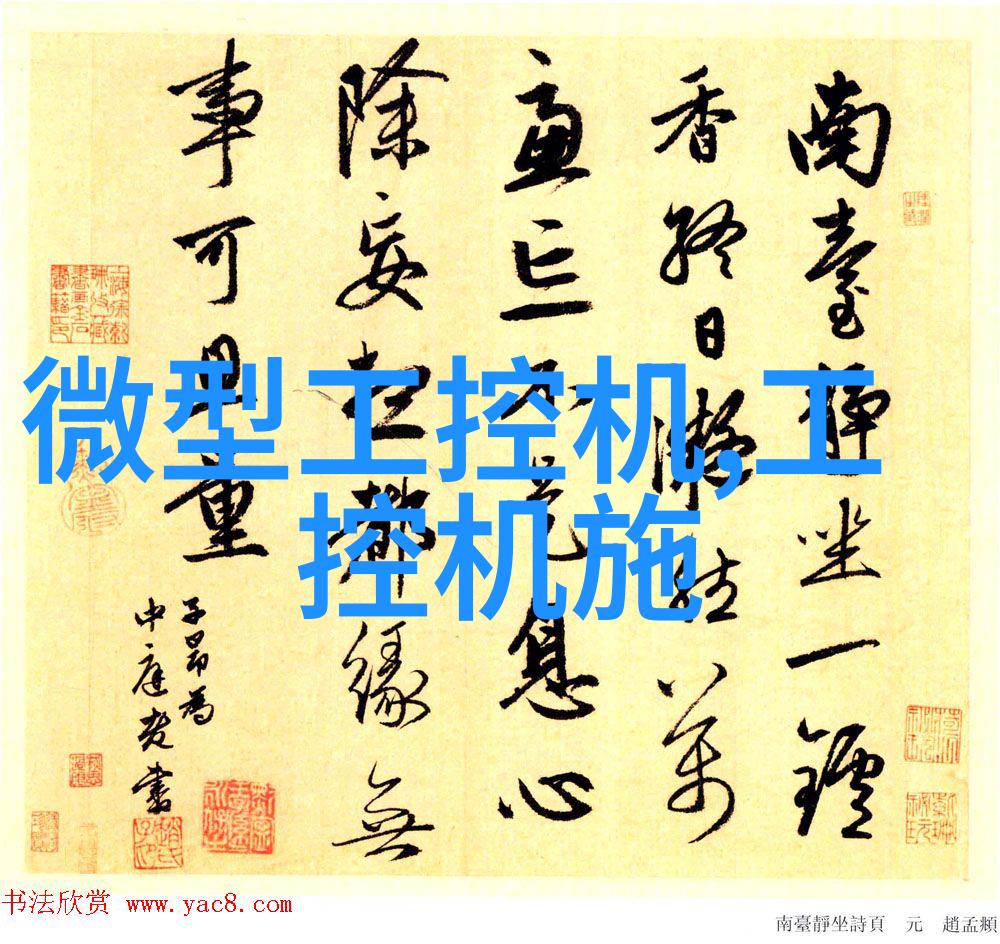 南臺靜坐一鑪
香終日凝然萬
慮亡不是息心
除妄想都緣無
事可量
子昂為
中庭老書
微型工控机,工
控机施
书法欣赏 www.yac8.com
南臺靜坐詩頁 元 趙孟頫